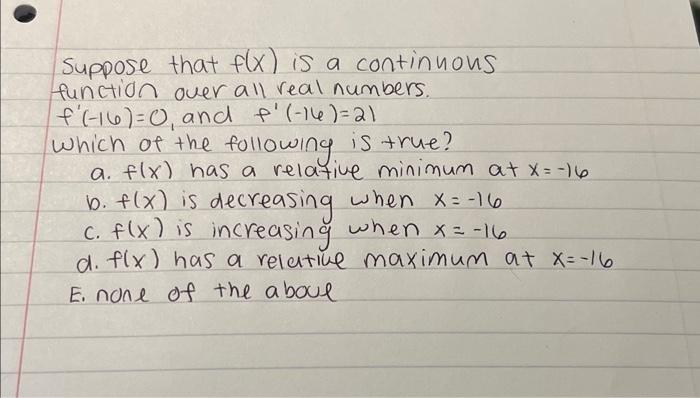 Suppose that f(x) is a continuous
function over all real numbers.
f'(-16)=0, and f'(-16)=21
Which of the following is true?
a. f(x) has a relative minimum at x=-16
b. f(x) is decreasing when x=-16
c. f(x) is increasing when x=-16
d. f(x) has a relative maximum at x=-16
E. none of the above